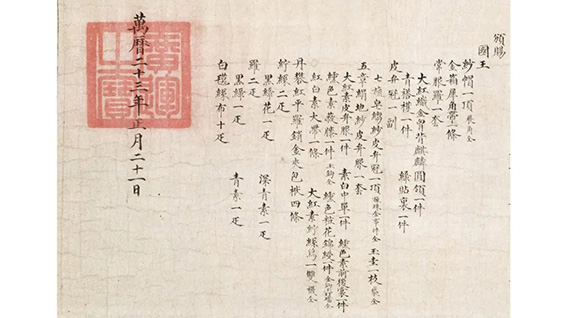 頒賜
國王
紗帽一頂展角全
金箱犀角帶一條
常服羅一套
大紅織金胷背麒麟圓領一件
青褡𧞤一件 綠貼裏一件
皮弁冠一副
七旒皁縐紗皮弁冠一頂旒珠金事件全 玉圭一枝袋全
五章絹地紗皮弁服一套
大紅素皮弁服一件 素白中單一件 纁色素前後裳一件
纁色素蔽膝一件玉鉤全 纁色粧花錦綬一件金鉤玉玎璫全
紅白素大帶一條 大紅素紵絲舄一雙襪全
丹礬紅平羅銷金夾包袱四條
紵絲二疋
黑綠花一疋 深青素一疋
羅二疋
黑綠一疋 青素一疋
白㲲絲布十疋
萬曆二十三年正月二十一日
廣運之寶